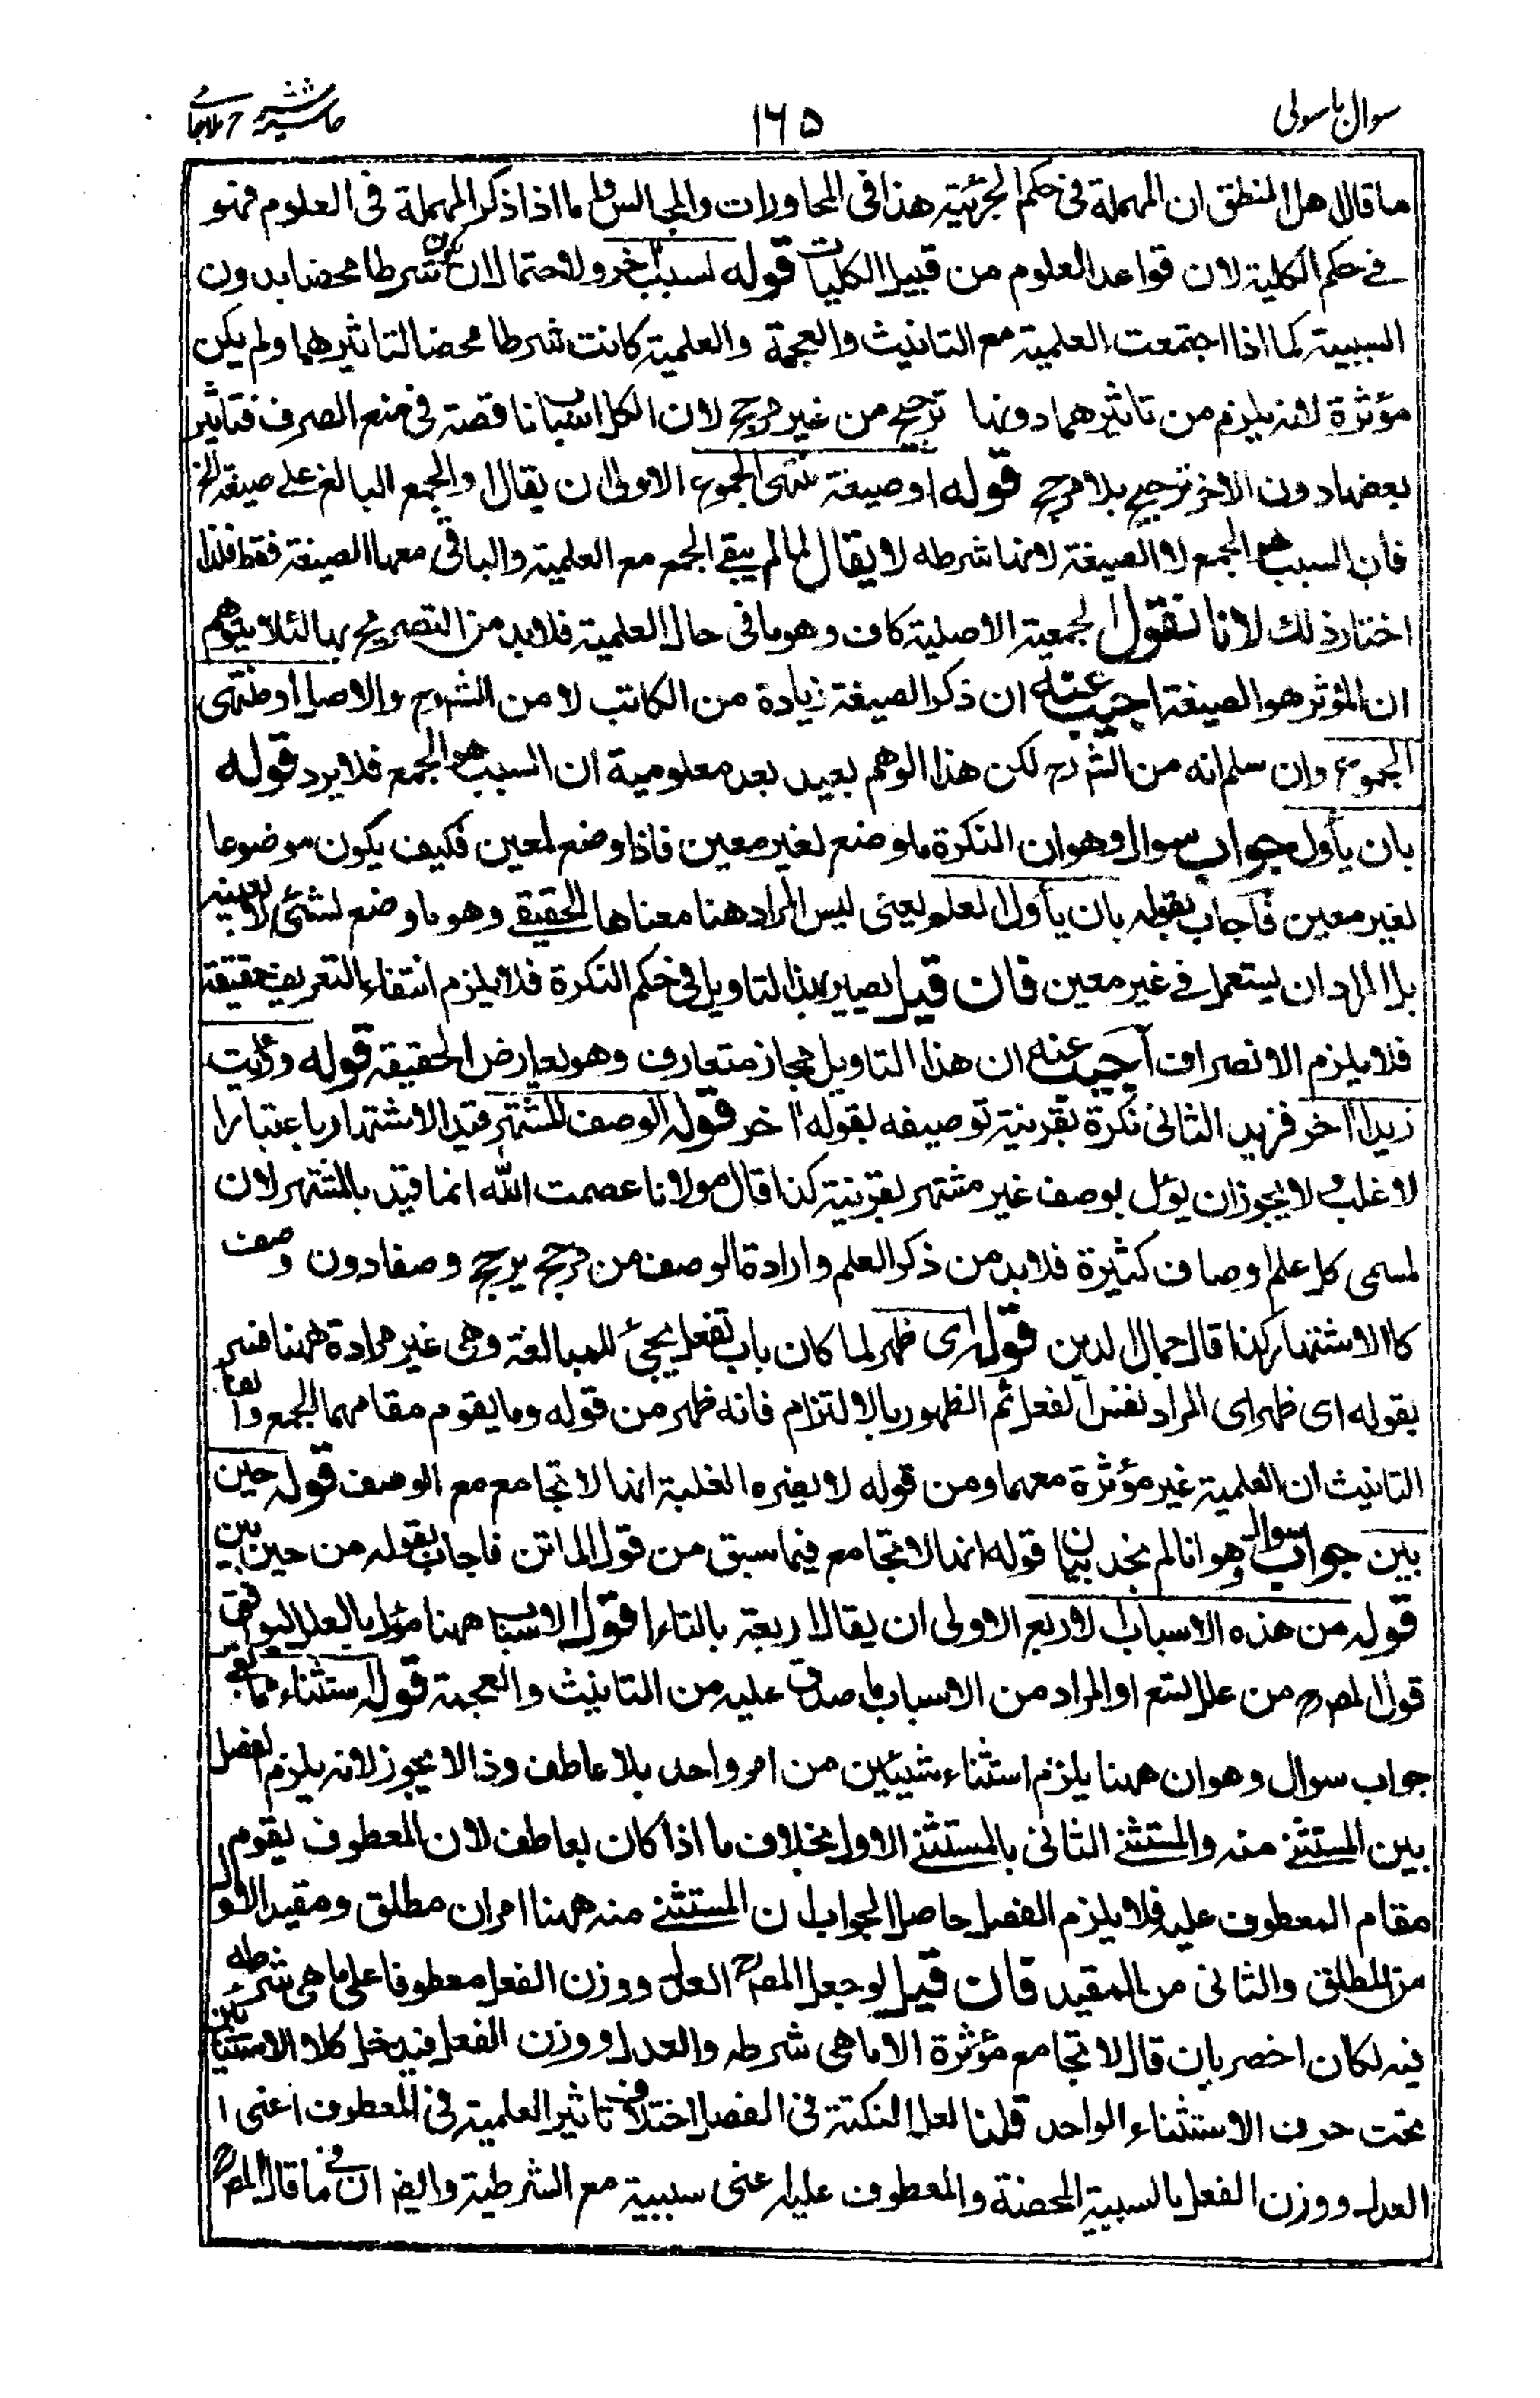 سوال باسولی ١٦٥ حاشیہ شرح ملاجامی
ما قال اهل المنطق ان المهملة فى حكم الجزئية هذا فى المحاورات والمجالس واما اذا ذكر المهملة فى العلوم فهو
فى حكم الكلية لان قواعد العلوم من قبيل الكليات قوله لسبب اخر ولاحتمال ان يكون شرطا محضا بدون
السببية كما اذا اجتمعت العلمية مع التانيث والعجمة والعلمية كانت شرطا محضا لتاثيرهما ولم يكن
مؤثرة لانه يلزم من تاثيرهما دونها ترجيح من غير مرجح لان الكل اسباب ناقصة فى منع الصرف فتاثير
بعضها دون الاخر ترجيح بلا مرجح قوله او صيغة منتهى الجموع الاولى ان يقال والجمع البالغ على صيغة الخ
فان السبب هو الجمع لا الصيغة لانها شرطه لا يقال لما لم يبقى الجمع مع العلمية والباقى معها الصيغة فقط فلذا
اختار ذلك لانا نقول الجمعية الاصلية كاف وهو ما فى حال العلمية فلا بد من التصريح بها لئلا يتوهم
ان المؤثر هو الصيغة اجيب عنه ان ذكر الصيغة زيادة من الكاتب لا من الشرح والاصل او منتهى
الجموع وان سلم انه من الشرح لكن هذا الوهم بعيد بعد معلومية ان السبب هو الجمع فلا يرد قوله
بان يأول جواب سوال وهو ان النكرة ما وضع لغير معين فاذا وضع لمعين فكيف يكون موضوعا
لغير معين فاجاب بقوله بان يأول العلم يعنى ليس المراد هنا معناها الحقيقى وهو ما وضع لشئ لا بعينه
بل المراد ان يستعمل فى غير معين فان قيل يصير بهذا التاويل فى حكم النكرة فلا يلزم انتفاء التعريف حقيقة
فلا يلزم الانصراف اجيب عنه ان هذا التاويل مجاز متعارف وهو يعارض الحقيقة قوله ورأيت
زيدا اخر فزيد الثانى نكرة بقرينة توصيفه بقوله اخر قوله الوصف المشتهر قيد الاشتهار باعتبار ا
لاغلب ولا يجوز ان يؤل بوصف غير مشتهر بقرينة كذا قال مولانا عصمت الله انما قيد بالمشتهر لان
لمسمى كل علم اوصاف كثيرة فلا بد من ذكر العلم وارادة الوصف من مرجح يرجح وصفا دون وصف
كالاشتهار كذا قال جمال الدين قوله اى ظهر لما كان باب تفعل يجئ للمبالغة وهى غير مرادة ههنا فسر
بقوله اى ظهر اى المراد نفس الفعل ثم الظهور بالالتزام فانه ظهر من قوله وما يقوم مقامهما الجمع والفا
التانيث ان العلمية غير مؤثرة معهما ومن قوله لا يضره الغلبة انها لا تجامع مع الوصف قوله حين
بين جواب سوال وهو انا لم نجد بيان قوله انها لا تجامع فيما سبق من قول الماتن فاجاب بقوله من حين بين
قوله من هذه الاسباب الاربع الاولى ان يقال اربعة بالتاء اقول الاسباب ههنا مؤل بالعلل ليوافق
قول المصرح من علل تسع او المراد من الاسباب ما صدق عليه من التانيث والعجمة قوله استثناء مما بقى
جواب سوال وهو ان ههنا يلزم استثناء شيئين من امر واحد بلا عاطف وذا لا يجوز لانه يلزم الفصل
بين المستثنى منه والمستثنى الثانى بالمستثنى الاول بخلاف ما اذا كان بعاطف لان المعطوف يقوم
مقام المعطوف عليه فلا يلزم الفصل حاصل الجواب ان المستثنى منه ههنا امران مطلق ومقيد الاول
من المطلق والثانى من المقيد فان قيل لو جعل المص العدل ووزن الفعل معطوفا على ما هى شرطه
فيه لكان اخصر بان قال لا تجامع مؤثرة الا ما هى شرطه والعدل ووزن الفعل فيدخل كلا الاستثنائين
تحت حرف الاستثناء الواحد قلنا لعل النكتة فى الفصل اختلاف تاثير العلمية فى المعطوف اعنى ا
العدل ووزن الفعل بالسببية المحضة والمعطوف عليه اعنى سببية مع الشرطية وايضا ان فى ما قال المص